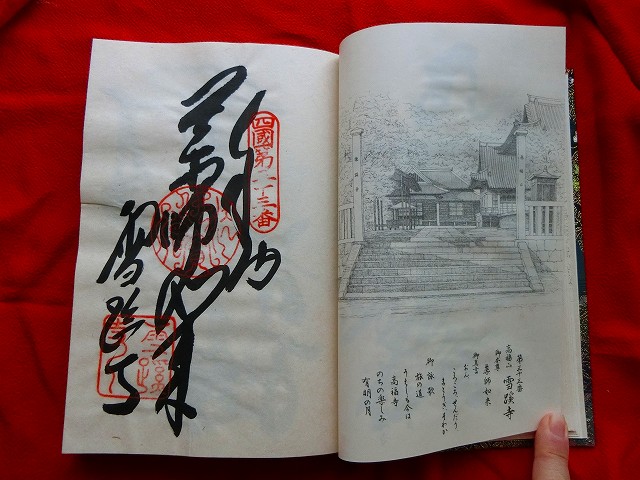 奉納
四國第三十三番
薬師如来
雪蹊寺
第三十三番
高福山 雪蹊寺
御本尊 薬師如来
御真言
おん
ころころ せんだり
まとうぎ そわか
御詠歌
旅の道
うえしも今は
高福寺
のちの楽しみ
有明の月